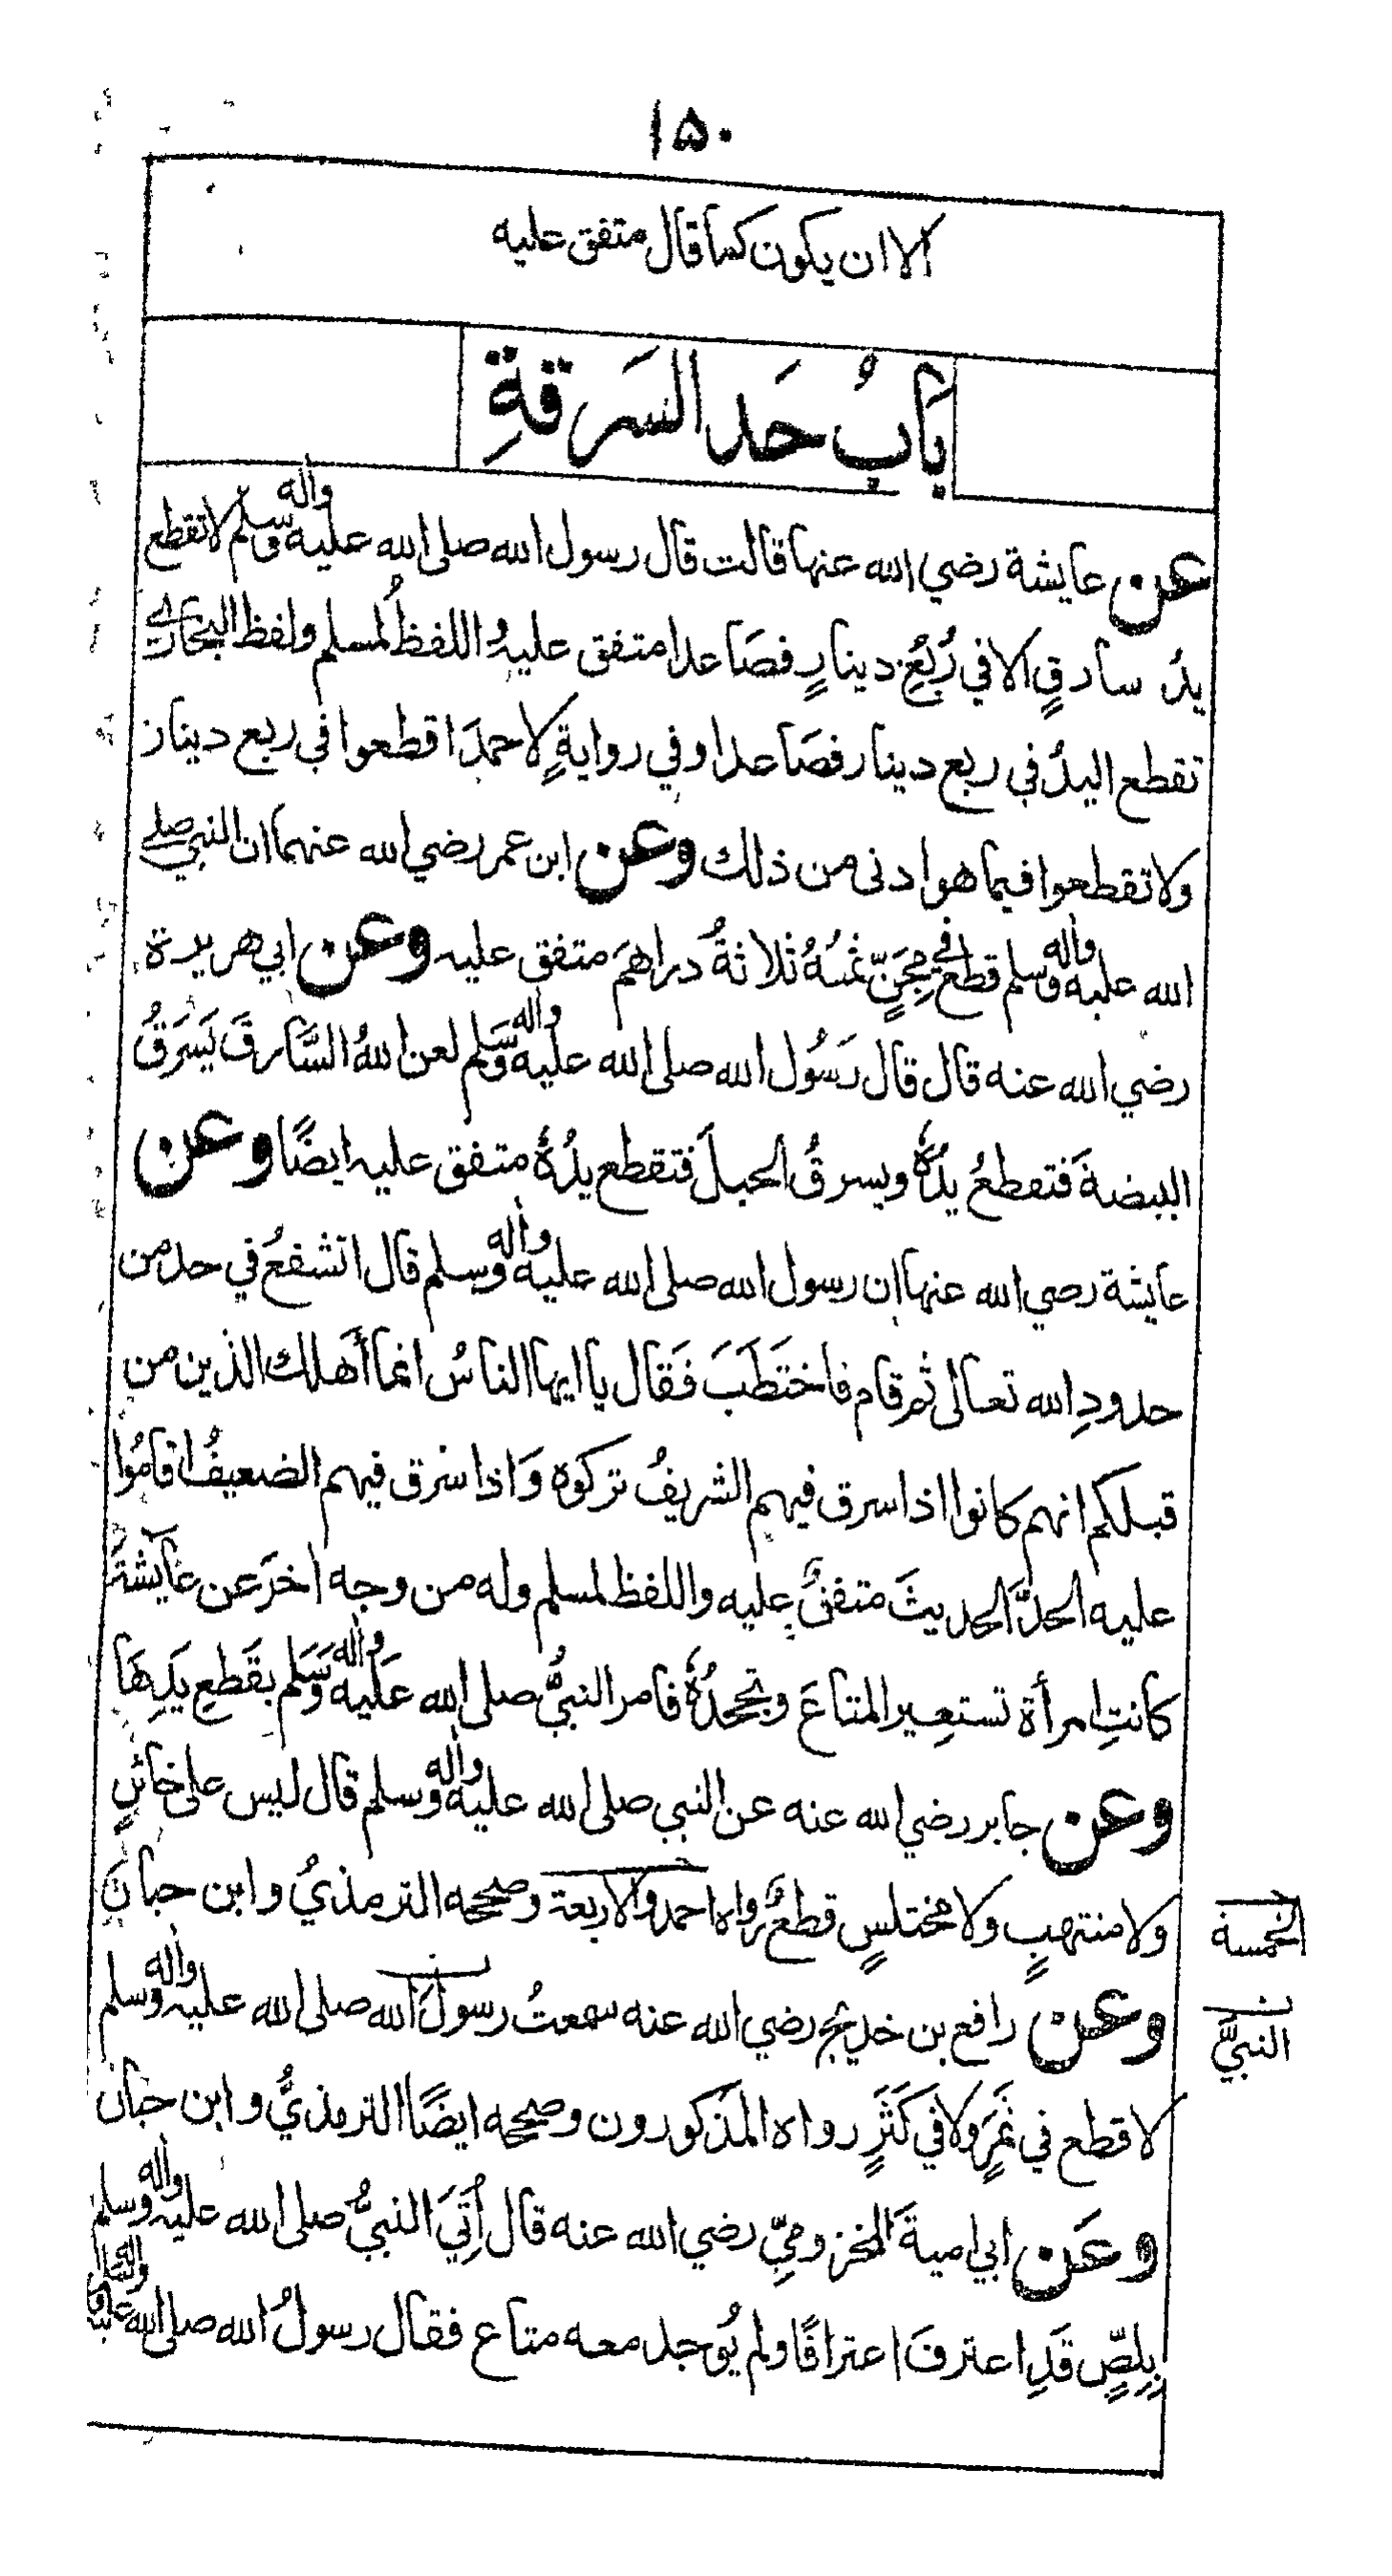 ١۵٠
الا ان يكون كما قال متفق عليه
بَابُ حَد السَرقةِ
عن عايشة رضي الله عنها قالت قال رسول الله صلى الله عليه واله وسلم لا تقطع
يدُ سارقٍ الا في رُبُعِ دينارٍ فصَاعدا متفق عليهِ واللفظُ لمسلم ولفظ البخاري
تقطع اليدُ في ربع دينار فصَاعدا وفي روايةٍ لاحمدَ اقطعوا في ربع دينار
ولا تقطعوا فيما هو ادنى من ذلك وعن ابن عمر رضي الله عنهما ان النبي صلى
الله عليه واله وسلم قطع في مِجَنٍّ ثمنُهُ ثلاثةُ دراهمَ متفق عليه وعن ابي هريرة
رضي الله عنه قال قال رَسُول الله صلى الله عليه واله وَسَلم لعن اللهُ السَّارقَ يَسرَقُ
البيضةَ فتقطعُ يدُهُ ويسرقُ الحبلَ فتقطع يدُهُ متفق عليه ايضًا وعن
عايشة رضي الله عنها ان رسول الله صلى الله عليه واله وسلم قال اتشفعُ في حد من
حدودِ الله تعالى ثم قام فاختَطَبَ فَقال يا ايها الناسُ انما أَهلك الذين من
قبلكم انهم كانوا اذا سرق فيهم الشريفُ تركوه وَاذا سرق فيهم الضعيفُ اقامُوا
عليه الحدَّ الحديثَ متفقٌ عليه واللفظ لمسلم وله من وجه اخرَ عن عايشةَ
كانتِ امرأة تستعِير المتاعَ وتجحدُهُ فامر النبيُّ صلى الله عَليه واله وَسَلم بقَطعِ يَدِهَا
وعن جابر رضي الله عنه عن النبي صلى الله عليه واله وسلم قال ليس على خائنٍ
ولا منتهبٍ ولا مختلسٍ قطعٌ رواه احمد والاربعة وصححه الترمذيُ وابن حبانَ
الخمسة
وعن رافع بن خديج رضي الله عنه سمعتُ رسولَ الله صلى الله عليه واله وسلم
النبيَّ
لا قطع في ثمَرٍ ولا في كَثَرٍ رواه المذكورون وصححه ايضًا الترمذيُّ وابن حبان
وعَن ابي اميةَ المخزوميِّ رضي الله عنه قال أُتِيَ النبيُّ صلى الله عليه واله وسلم
بِلِصٍّ قَدِ اعترفَ اعترافًا ولم يُوجد معه متاع فقال رسولُ الله صلى الله عليه واله وسلم